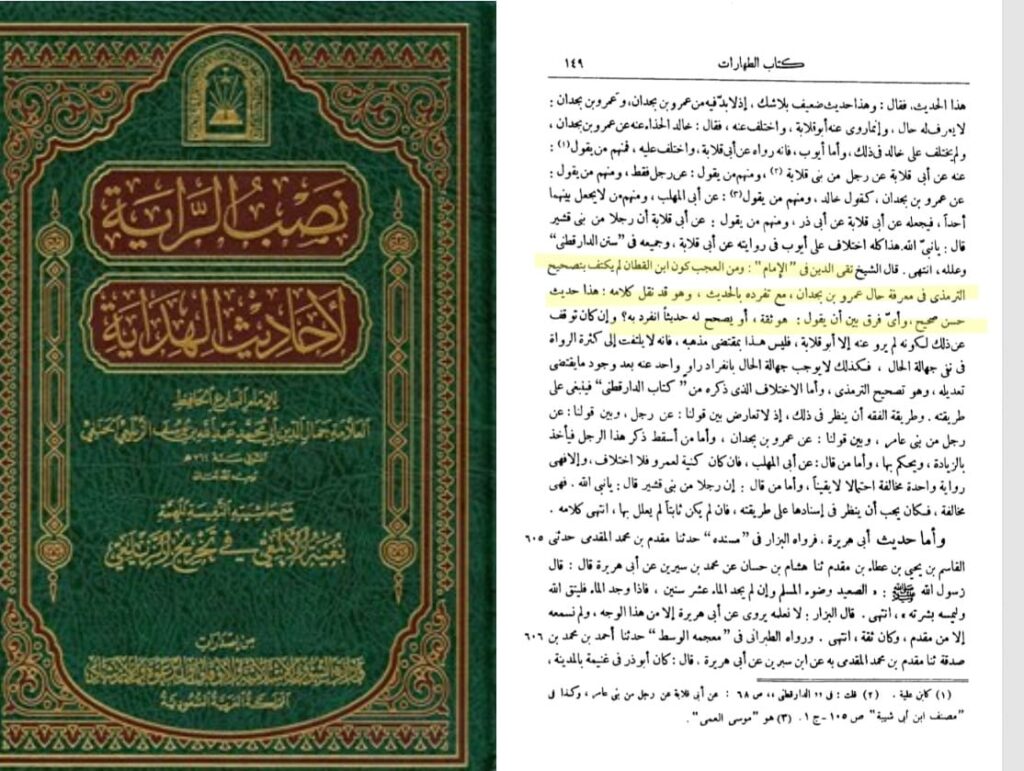 نَصْبُ الرَّايَة
لِأَحَادِيثِ الْهِدَايَة
للإمام البارع الحافظ
العلامة جمال الدين أبي محمد عبد الله بن يوسف الزيلعي الحنفي
المتوفى سنة ٧٦٢ هـ
مع حاشيته النفيسة المهمة
بغية الألمعي في تخريج الزيلعي
من إصدارات
المملكة العربية السعودية
كتاب الطهارات ١٤٩
هذا الحديث. فقال : وهذا حديث ضعيف بلا شك ، إذ لا بد فيه من عمرو بن بجدان، وعمرو بن بجدان :
لا يعرف له حال ، وإنما روى عنه أبو قلابة ، واختلف عنه ، فقال : خالد الحذاء عنه عن عمرو بن بجدان ،
ولم يختلف على خالد فى ذلك، وأما أيوب ، فانه رواه عن أبى قلابة، واختلف عليه ، فمنهم من يقول (١) :
عنه عن أبى قلابة عن رجل من بنى قلابة (٢) ، ومنهم من يقول : عن رجل فقط ، ومنهم من يقول :
عن عمرو بن بجدان ، كقول خالد ، ومنهم من يقول (٣) : عن أبى المهلب ، ومنهم من لا يجعل بينهما
أحداً ، فيجعله عن أبى قلابة عن أبى ذر ، ومنهم من يقول : عن أبى قلابة أن رجلا من بنى قشير
قال : يا نبىّ الله. هذا كله اختلاف على أيوب فى روايته عن أبى قلابة ، وجميعه فى "سنن الدارقطنى"
وعلله ، انتهى . قال الشيخ تقى الدين فى "الإمام" : ومن العجب كون ابن القطان لم يكتف بتصحيح
الترمذى فى معرفة حال عمرو بن بجدان ، مع تفرده بالحديث ، وهو قد نقل كلامه : هذا حديث
حسن صحيح ، وأىّ فرق بين أن يقول : هو ثقة ، أو يصحح له حديثاً انفرد به ؟ وإن كان توقف
عن ذلك لكونه لم يرو عنه إلا أبو قلابة ، فليس هذا بمقتضى مذهبه ، فانه لا يلتفت إلى كثرة الرواة
فى نفى جهالة الحال ، فكذلك لا يوجب جهالة الحال بانفراد راوٍ واحد عنه بعد وجود ما يقتضى
تعديله ، وهو تصحيح الترمذى ، وأما الاختلاف الذى ذكره من "كتاب الدارقطنى" فينبغى على
طريقته . وطريقة الفقه أن ينظر فى ذلك ، إذ لا تعارض بين قولنا : عن رجل ، وبين قولنا : عن
رجل من بنى عامر ، وبين قولنا : عن عمرو بن بجدان ، وأما من أسقط ذكر هذا الرجل فيأخذ
بالزيادة ، ويحكم بها ، وأما من قال : عن أبى المهلب ، فان كان كنية لعمرو فلا اختلاف ، وإلا فهى
رواية واحدة مخالفة احتمالا لا يقيناً ، وأما من قال : إن رجلا من بنى قشير قال : يا نبى الله . فهى
مخالفة ، فكان يجب أن ينظر فى إسنادها على طريقته ، فان لم يكن ثابتاً لم يعلل بها ، انتهى كلامه .
وأما حديث أبى هريرة ، فرواه البزار فى "مسنده" حدثنا مقدم بن محمد المقدمى حدثنى ٦٠٥
القاسم بن يحيى بن عطاء بن مقدم ثنا هشام بن حسان عن محمد بن سيرين عن أبى هريرة قال : قال
رسول الله ﷺ : « الصعيد وضوء المسلم وإن لم يجد الماء عشر سنين ، فاذا وجد الماء فليتق الله
وليمسه بشرته » ، انتهى . قال البزار : لا نعلمه يروى عن أبى هريرة إلا من هذا الوجه ، ولم نسمعه
إلا من مقدم ، وكان ثقة ، انتهى . ورواه الطبرانى فى "معجمه الوسط" حدثنا أحمد بن محمد بن ٦٠٦
صدقة ثنا مقدم بن محمد المقدمى به عن ابن سيرين عن أبى هريرة . قال : كان أبو ذر فى غنيمة بالمدينة ،
(١) كابن علية . (٢) قلت : فى "الدارقطنى" ، ص ٦٨ : عن أبى قلابة عن رجل من بنى عامر ، وكذا فى
"مصنف ابن أبى شيبة" ص ١٠٥ - ج ١ . (٣) هو "موسى العمى" .